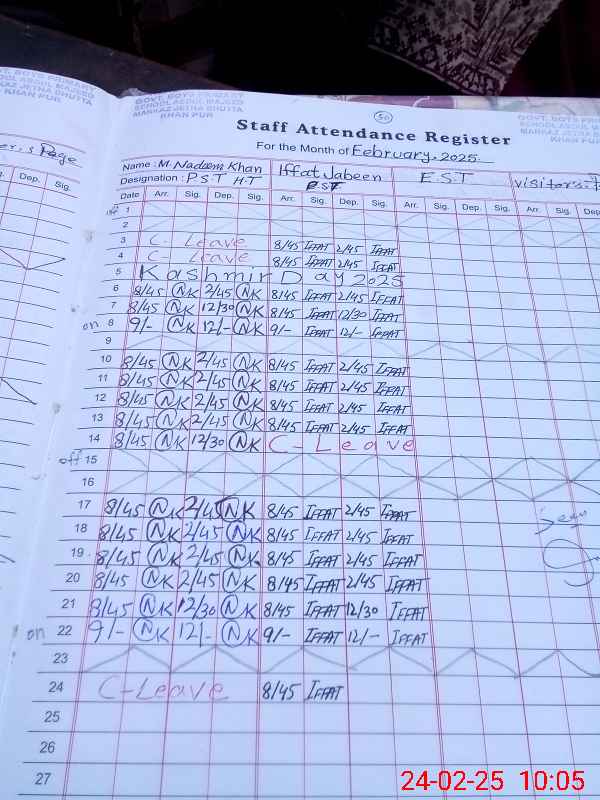 GOVT. BOYS PRIMARY
SCHOOL ABDUL MAJEED
MARKAZ JETHA BHUTTA
KHAN PUR
50
Staff Attendance Register
For the Month of February, 2025.
Name : M. Nadeem Khan Iffat Jabeen
Designation : P S T H-T P.S.T E.S.T visitors
Date Arr. Sig. Dep. Sig. Arr. Sig. Dep. Sig. Arr. Sig. Dep. Sig. Arr. Sig.
off 1
2
3 C- Leave 8/45 IFFAT 2/45 IFFAT
4 C- Leave 8/45 IFFAT 2/45 IFFAT
5 Kashmir Day 2025
6 8/45 NK 2/45 NK 8/45 IFFAT 2/45 IFFAT
7 8/45 NK 12/30 NK 8/45 IFFAT 12/30 IFFAT
on 8 9/- NK 12/- NK 9/- IFFAT 12/- IFFAT
9
10 8/45 NK 2/45 NK 8/45 IFFAT 2/45 IFFAT
11 8/45 NK 2/45 NK 8/45 IFFAT 2/45 IFFAT
12 8/45 NK 2/45 NK 8/45 IFFAT 2/45 IFFAT
13 8/45 NK 2/45 NK 8/45 IFFAT 2/45 IFFAT
14 8/45 NK 12/30 NK C- Leave
off 15
16
17 8/45 NK 2/45 NK 8/45 IFFAT 2/45 IFFAT
18 8/45 NK 2/45 NK 8/45 IFFAT 2/45 IFFAT
19 8/45 NK 2/45 NK 8/45 IFFAT 2/45 IFFAT
20 8/45 NK 2/45 NK 8/45 IFFAT 2/45 IFFAT
21 8/45 NK 12/30 NK 8/45 IFFAT 12/30 IFFAT
on 22 9/- NK 12/- NK 9/- IFFAT 12/- IFFAT
23
24 C-Leave 8/45 IFFAT
25
26
27
Page
Dep. Sig.
24-02-25 10:05